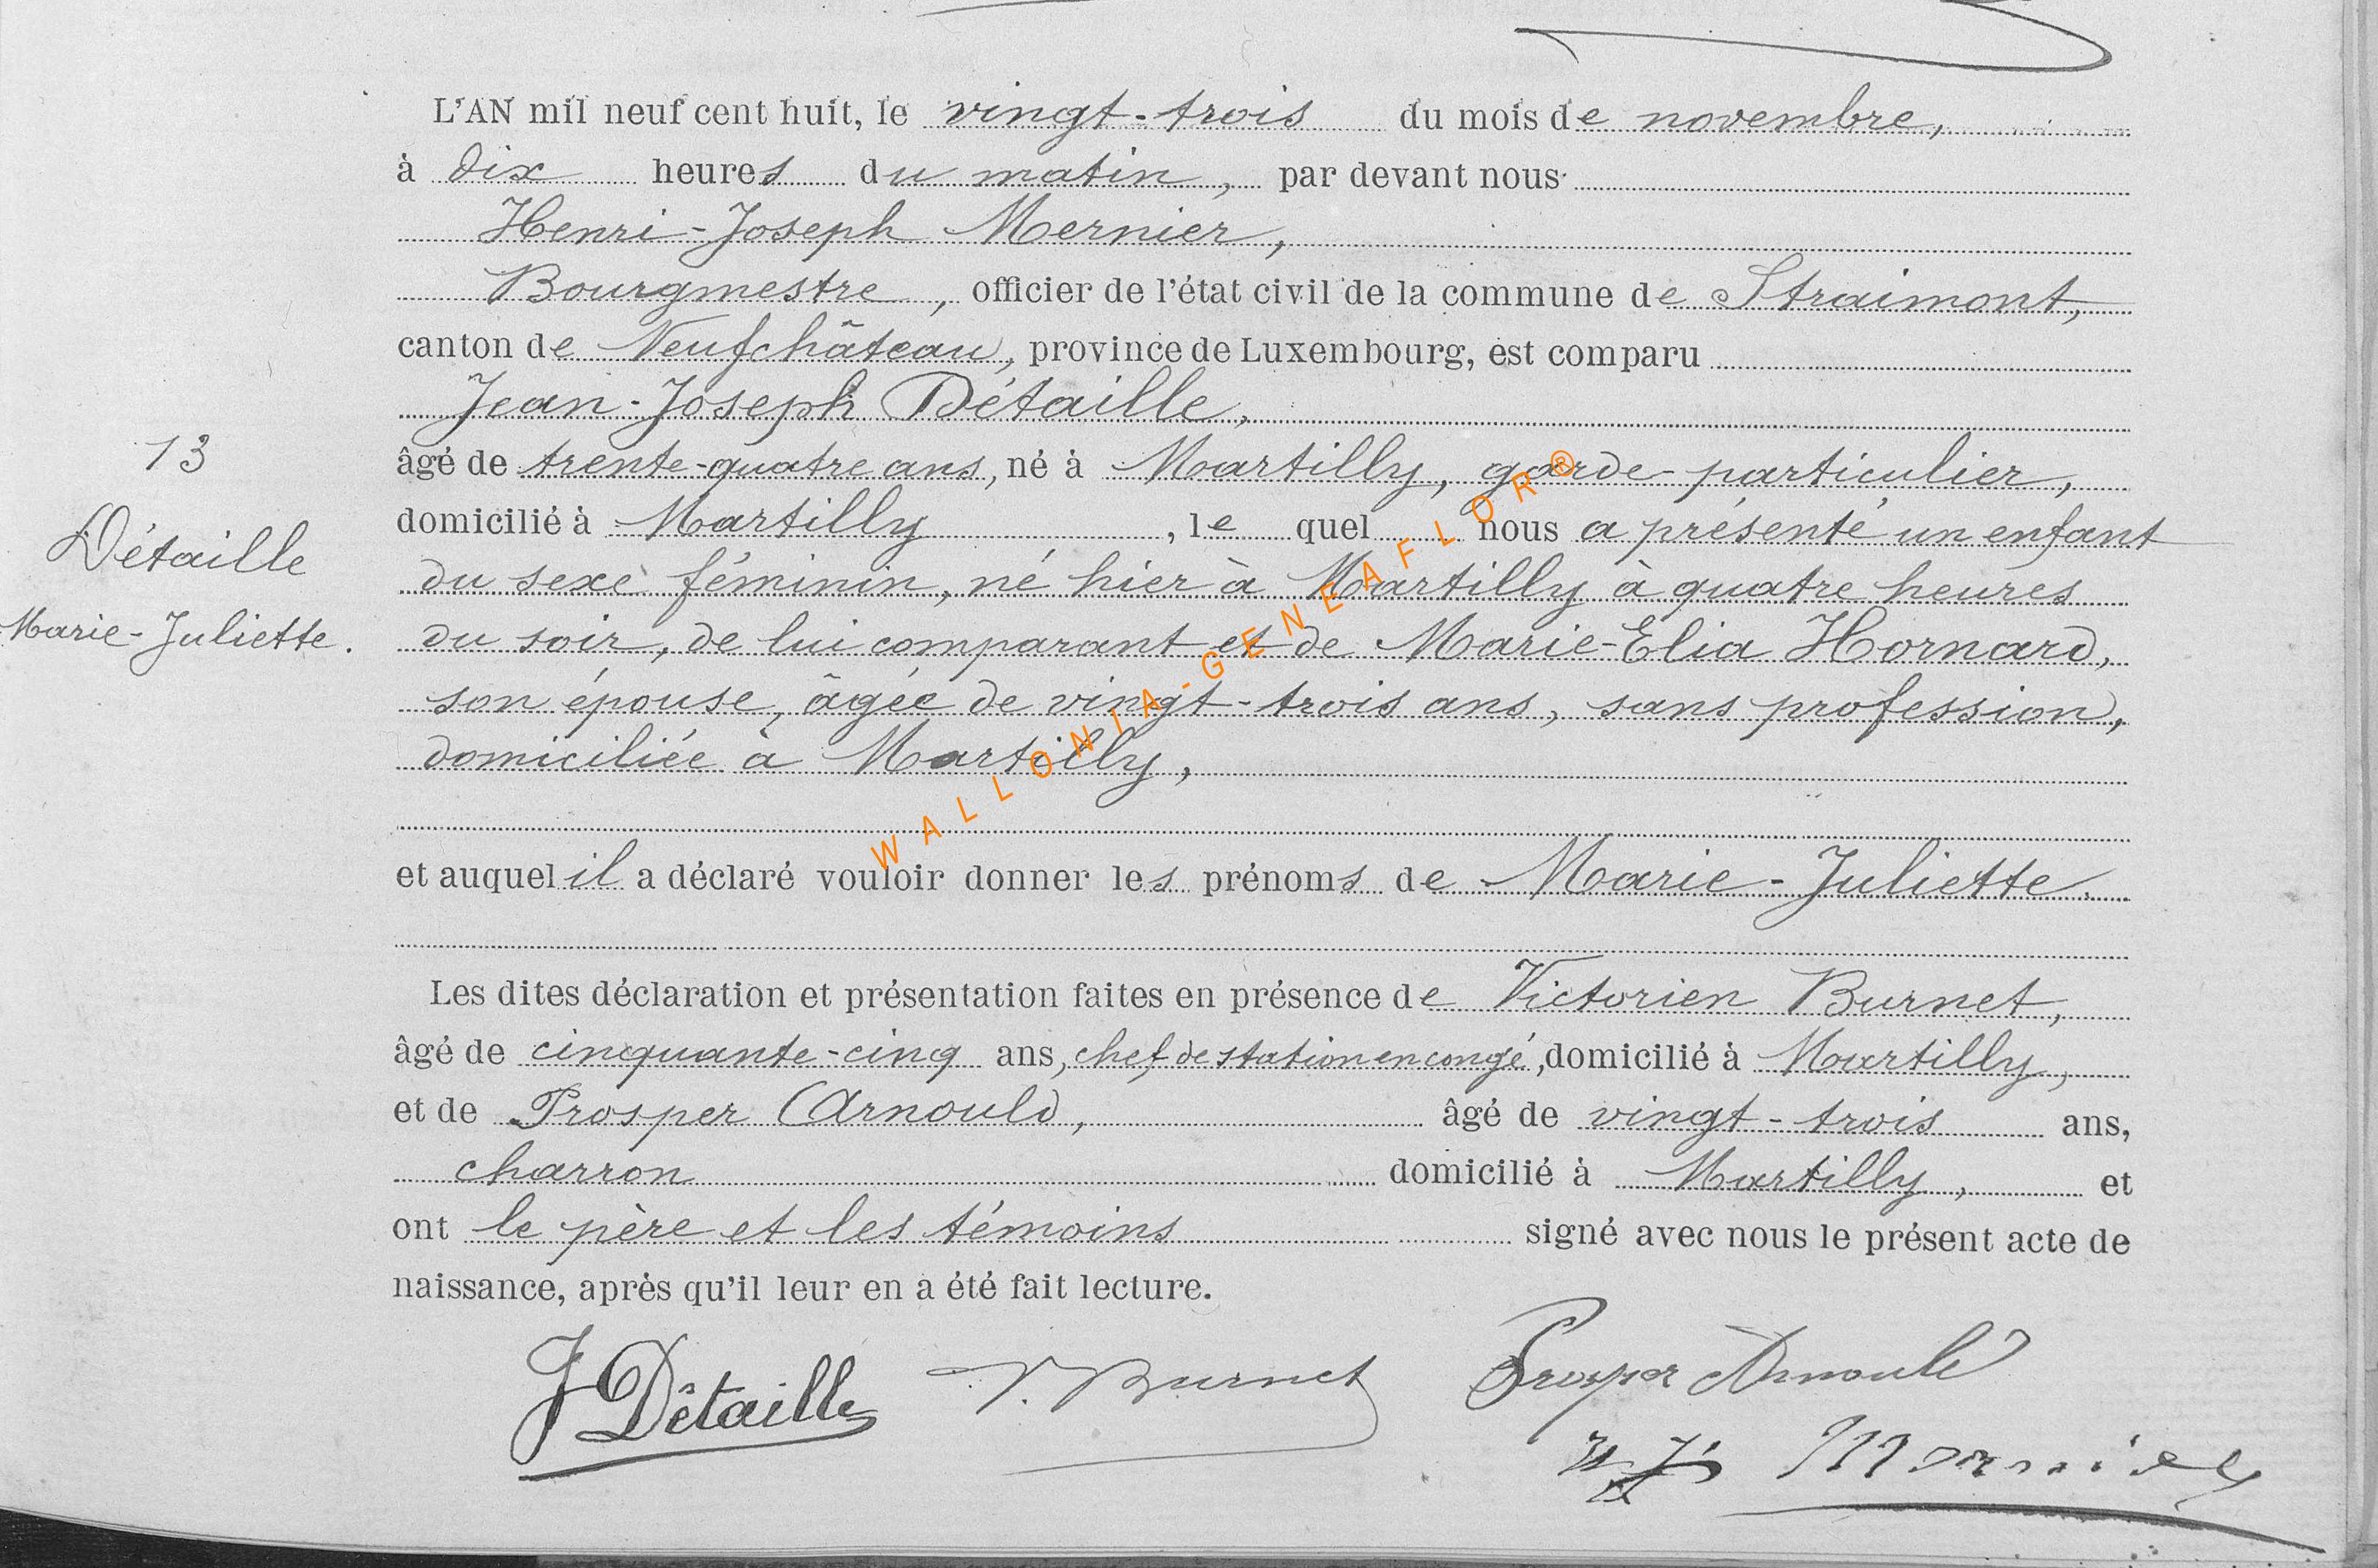 L'AN mil neuf cent huit, le vingt-trois du mois de novembre,
à dix heures du matin, par devant nous
Henri-Joseph Mernier,
Bourgmestre, officier de l'état civil de la commune de Straimont,
canton de Neufchâteau, province de Luxembourg, est comparu
Jean-Joseph Détaille,
13
âgé de trente-quatre ans, né à Martilly, garde-particulier,
domicilié à Martilly, le quel nous a présenté un enfant
Détaille
du sexe féminin, né hier à Martilly à quatre heures
Marie-Juliette.
du soir, de lui comparant et de Marie-Elia Hornard,
son épouse, âgée de vingt-trois ans, sans profession,
domiciliée à Martilly,
WALLONIA-GENEAFLOR®
et auquel il a déclaré vouloir donner les prénoms de Marie-Juliette.
Les dites déclaration et présentation faites en présence de Victorien Burnet,
âgé de cinquante-cinq ans, chef de station en congé, domicilié à Martilly,
et de Prosper Arnould, âgé de vingt-trois ans,
charron domicilié à Martilly, et
ont le père et les témoins signé avec nous le présent acte de
naissance, après qu'il leur en a été fait lecture.
J Détaille V. Burnet Prosper Arnould
H J Mernier